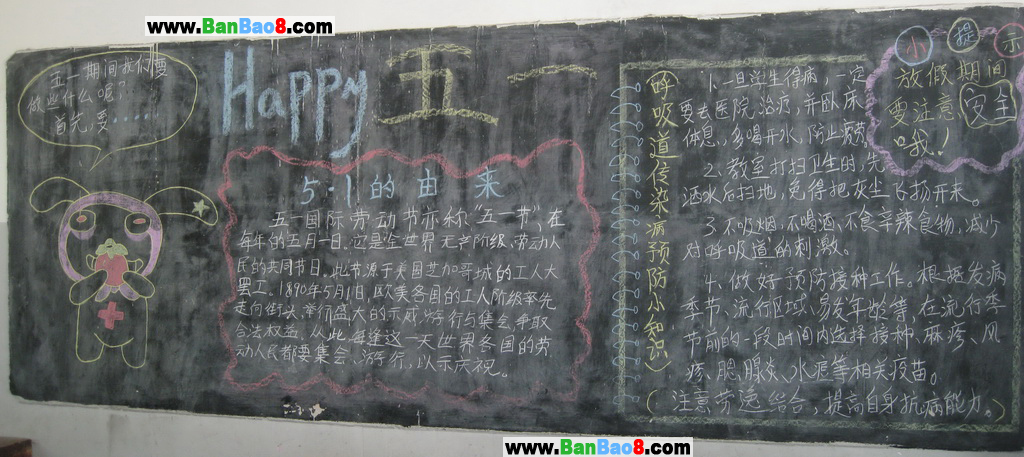 www.BanBao8.com
五一期间我们要
做些什么呢?
首先,要……
Happy 五一
5·1的由来
五一国际劳动节亦称"五一节",在
每年的五月一日。它是全世界无产阶级、劳动人
民的共同节日。此节源于美国芝加哥城的工人大
罢工。1890年5月1日,欧美各国的工人阶级率先
走向街头,举行盛大的示威游行与集会,争取
合法权益。从此,每逢这一天世界各国的劳
动人民都要集会、游行,以示庆祝。
呼吸道传染病预防小知识
1.一旦学生得病,一定
要去医院治疗,并卧床
休息,多喝开水,防止
2.教室打扫卫生时,先
洒水后扫地,免得把灰尘飞扬开来。
3.不吸烟,不喝酒,不食辛辣食物,减少
对呼吸道的刺激。
4.做好预防接种工作。根据发病
季节、流行区域、易发年龄等,在流行季
节前的一段时间内选择接种、麻疹、风
疹、腮腺炎、水痘等相关疫苗。
(注意劳逸结合,提高自身抗病能力。)
小提示
放假期间
要注意安全
哦!
www.BanBao8.com